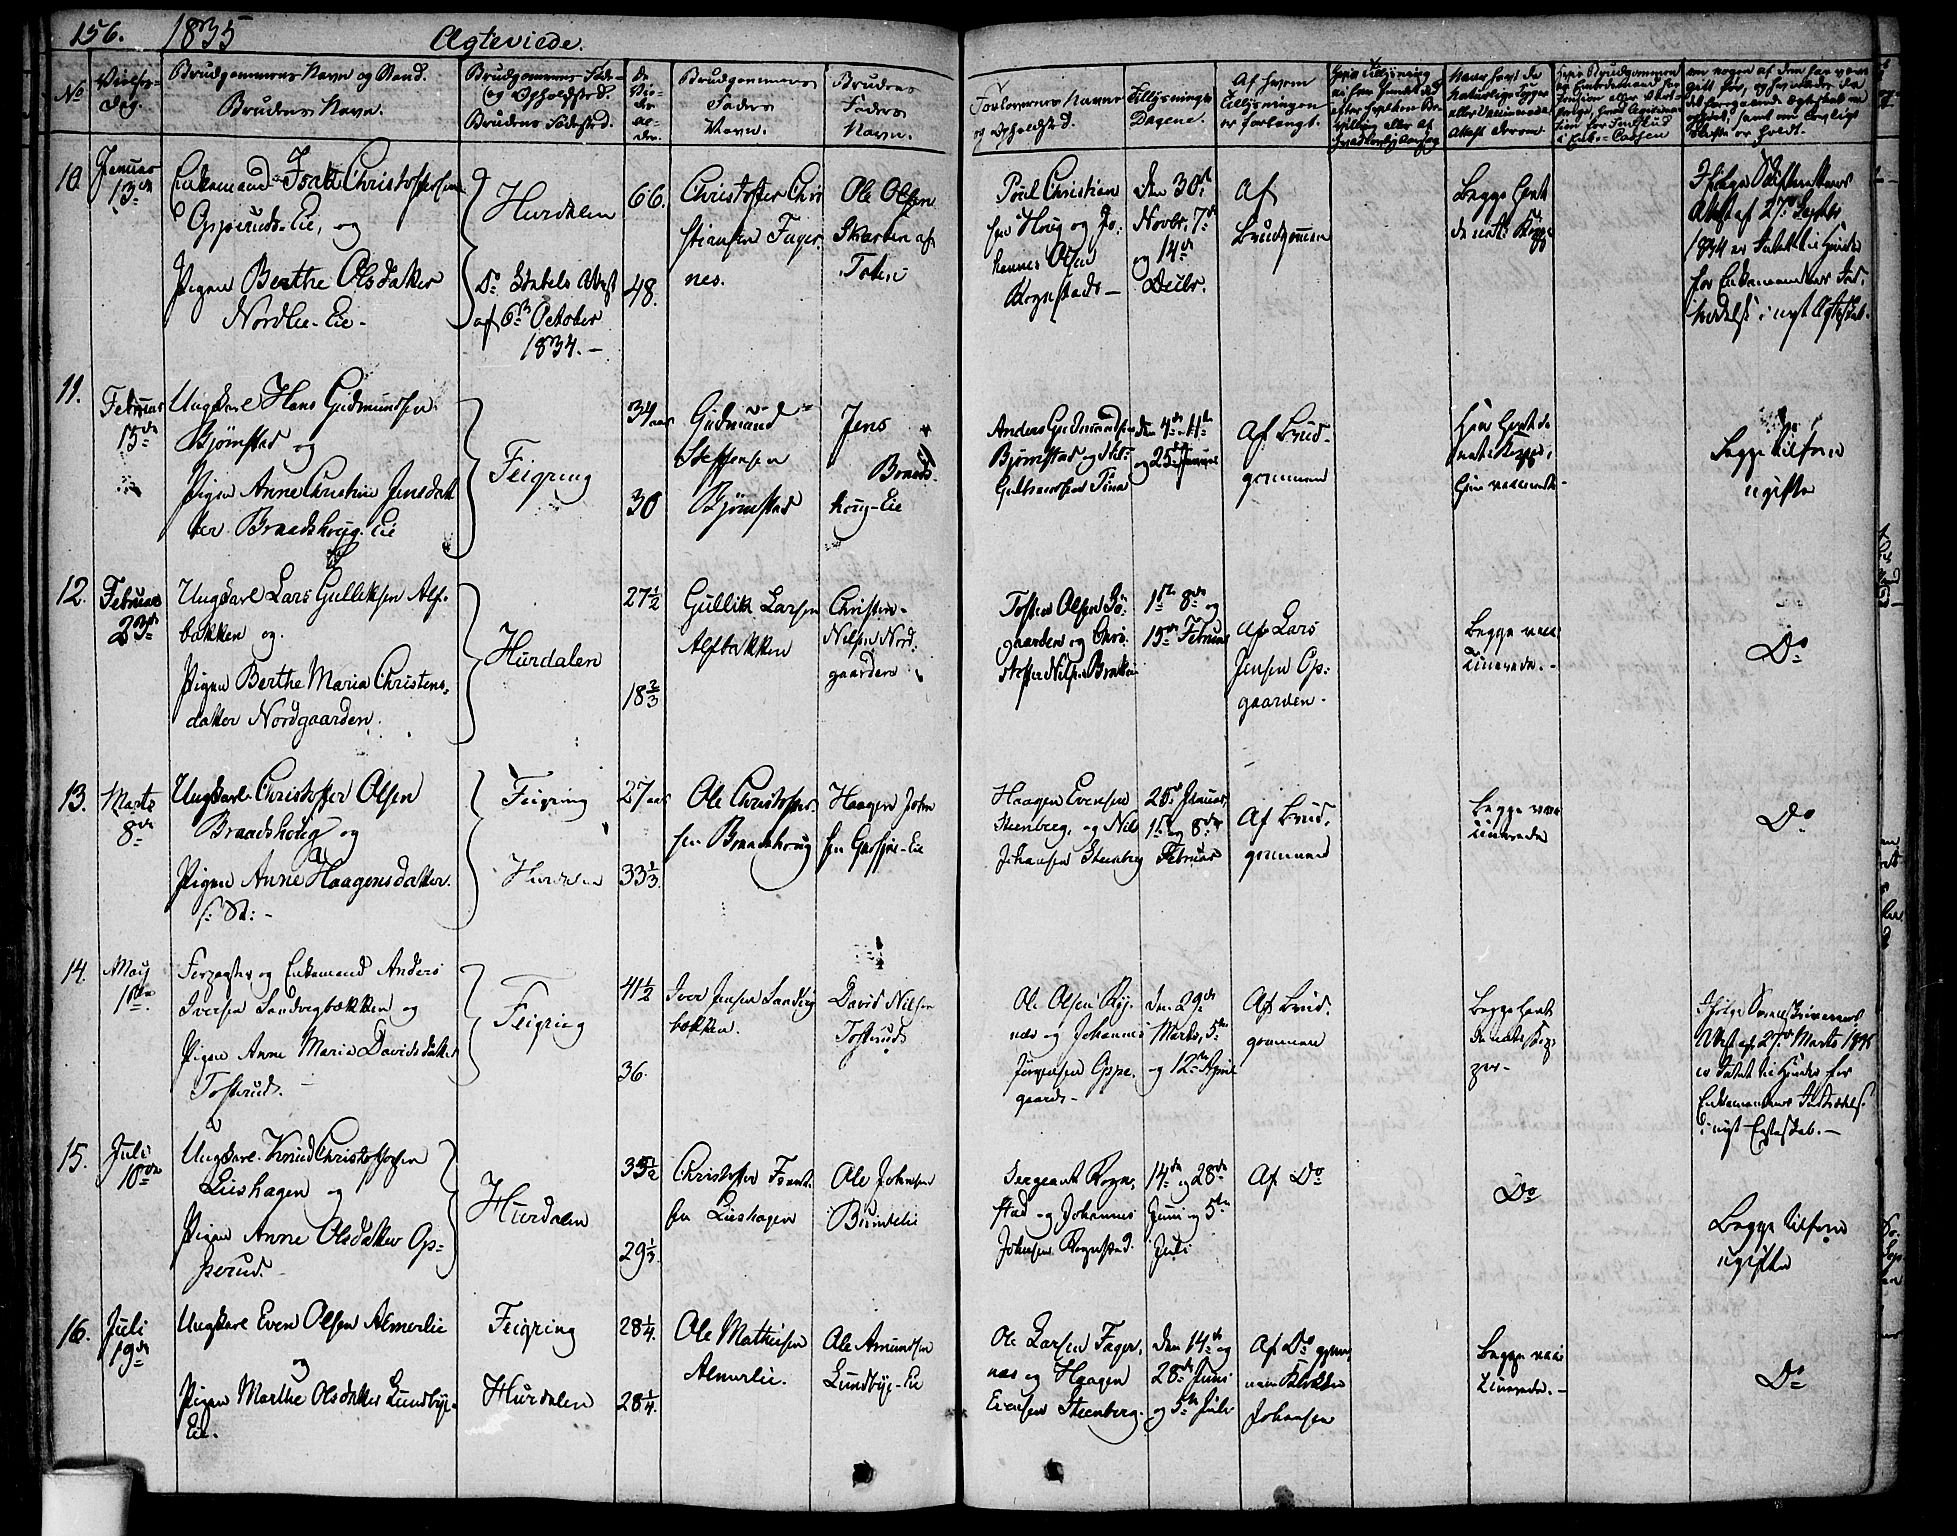 156. 1835 Ægteviede.
No
Vielses-
Dag.
Brudgommens Navn og Stand.
Brudens Navn.
BrudgommensFøde-
og Opholdsted.
Brudens Fødested.
Brudgommens
Faders
Navn.
Brudens
Faders
Navn.
Forlovernes Navne
og Opholdsted.
Tillysnings
Dagene.
Af hvem
Tillysningen
er forlangt.
10.
Januar
13de
Enkemand Isak Christophersen
Opperuds-Eie, og
Pigen Berthe Olsdatter
Nordlie-Eie-
Hurdalen
Do
Attest
af 6te October
1834.-
66.
48.
Christoffer Chri
stiansen Fager
nes.
Ole Olsen
af
Toten
Poel Christian
sen Houg og Jo:
hannes Olsen
Rognstad-
Den 30te
Novbr. 7de
og 14de
Decbr.
Af
Brudgommen
Begge havt
de natl. Kopp
Ifølge Skifterettens
Attest af 27de Septbr
1834 er Intet til Hinder
for Enkemandens Ind-
trædelse i nyt Ægteskab.
11.
Februar
15de
Ungkarl Hans Gudmundsen
Bjørnstad og
Pigen Anne Christine Jensdat
ter Braadshoug-Eie
Feigring
34 aar
30
Gudmund
Steffensen
Bjørnstad
Jens
Braads-
houg-Eie
Anders Gudmundsen
Bjørnstad og
den 4de 11te
og 25de Januar
Af Brud-
gommen
Begge tilforn
ugifte
12.
Februar
23de
Ungkarl Lars Gulliksen Alf-
bakken og
Pigen Berthe Maria Christens-
datter Nordgaarden.
Hurdalen
27½
18⅔
Gullik Larsen
Alfbakken
Christen
Nilsen Nord-
gaarden
Tosten Olsen
gaarden og Chri-
stoffer Nilsen
1ste 8de og
15de Februar
Af Lars
Jensen Op-
gaarden.
Begge vac-
cinerede.-
Do
13.
Marts
8de
Ungkarl Christoffer Olsen
Braadshoug og
Pigen Anne Haagensdatter
Feigring
Hurdalen
27 aar
33⅓
Ole Christoffer
sen Braadshoug
Haagen John
sen Garsjøe-Eie
Haagen Evensen
Steenberg, og Nils
Johansen Steenberg
25de Januar
1ste og 8de
Februar
Af Brud-
gommen
Begge vac-
cinerede
Do
14.
May
10de
og Enkemand Anders
Iversen Sandvigbakken og
Pigen Anne Maria Davidsdatter
Tosterud.
Feigring
41½
36.
Iver Jensen Sandvig
bakken.
David Nilsen
Tosterud
Ole Olsen Ryg-
næs og Johannes
Jørgensen Oppe-
gaard-
den 29de
Marts, 5te
og 12te April
Af Brud-
gommen
Begge havt
de natl. Kop
per-
Ifølge Sorenskriverens
Attest af 27de Marts 1835
er Intet til Hinder for
Enkemandens Indtrædelse
i nyt Egteskab.-
15.
Juli
10de
Ungkarl Knud Christoffersen
Lieshagen og
Pigen Anne Olsdatter Op-
perud.
Hurdalen
35½
29⅓
Christoffer
sen Lieshagen
Ole Johnsen
Buntelie
Sergeant Rogn-
stad og Johannes
Johnsen Rognstad.
14de og 28de
Juni og 5te
Juli
Af Do
Do
Begge tilforn
ugifte
16.
Juli
19de
Ungkarl Even Olsen Almerlie
og
Pigen Marthe Olsdatter Lundbye-
Eie.
Feigring
Hurdalen
28¼.
28¼.
Ole Mathisen
Almerlie.
Ole Amundsen
Lundbye-Eie
Ole Larsen Fager-
næs og Haagen
Evensen Steenberg.
den 14de og
28de Juni
og 5te Juli
Af Do gjen-
nem
Johansen
Begge vac-
cinerede.-
Do